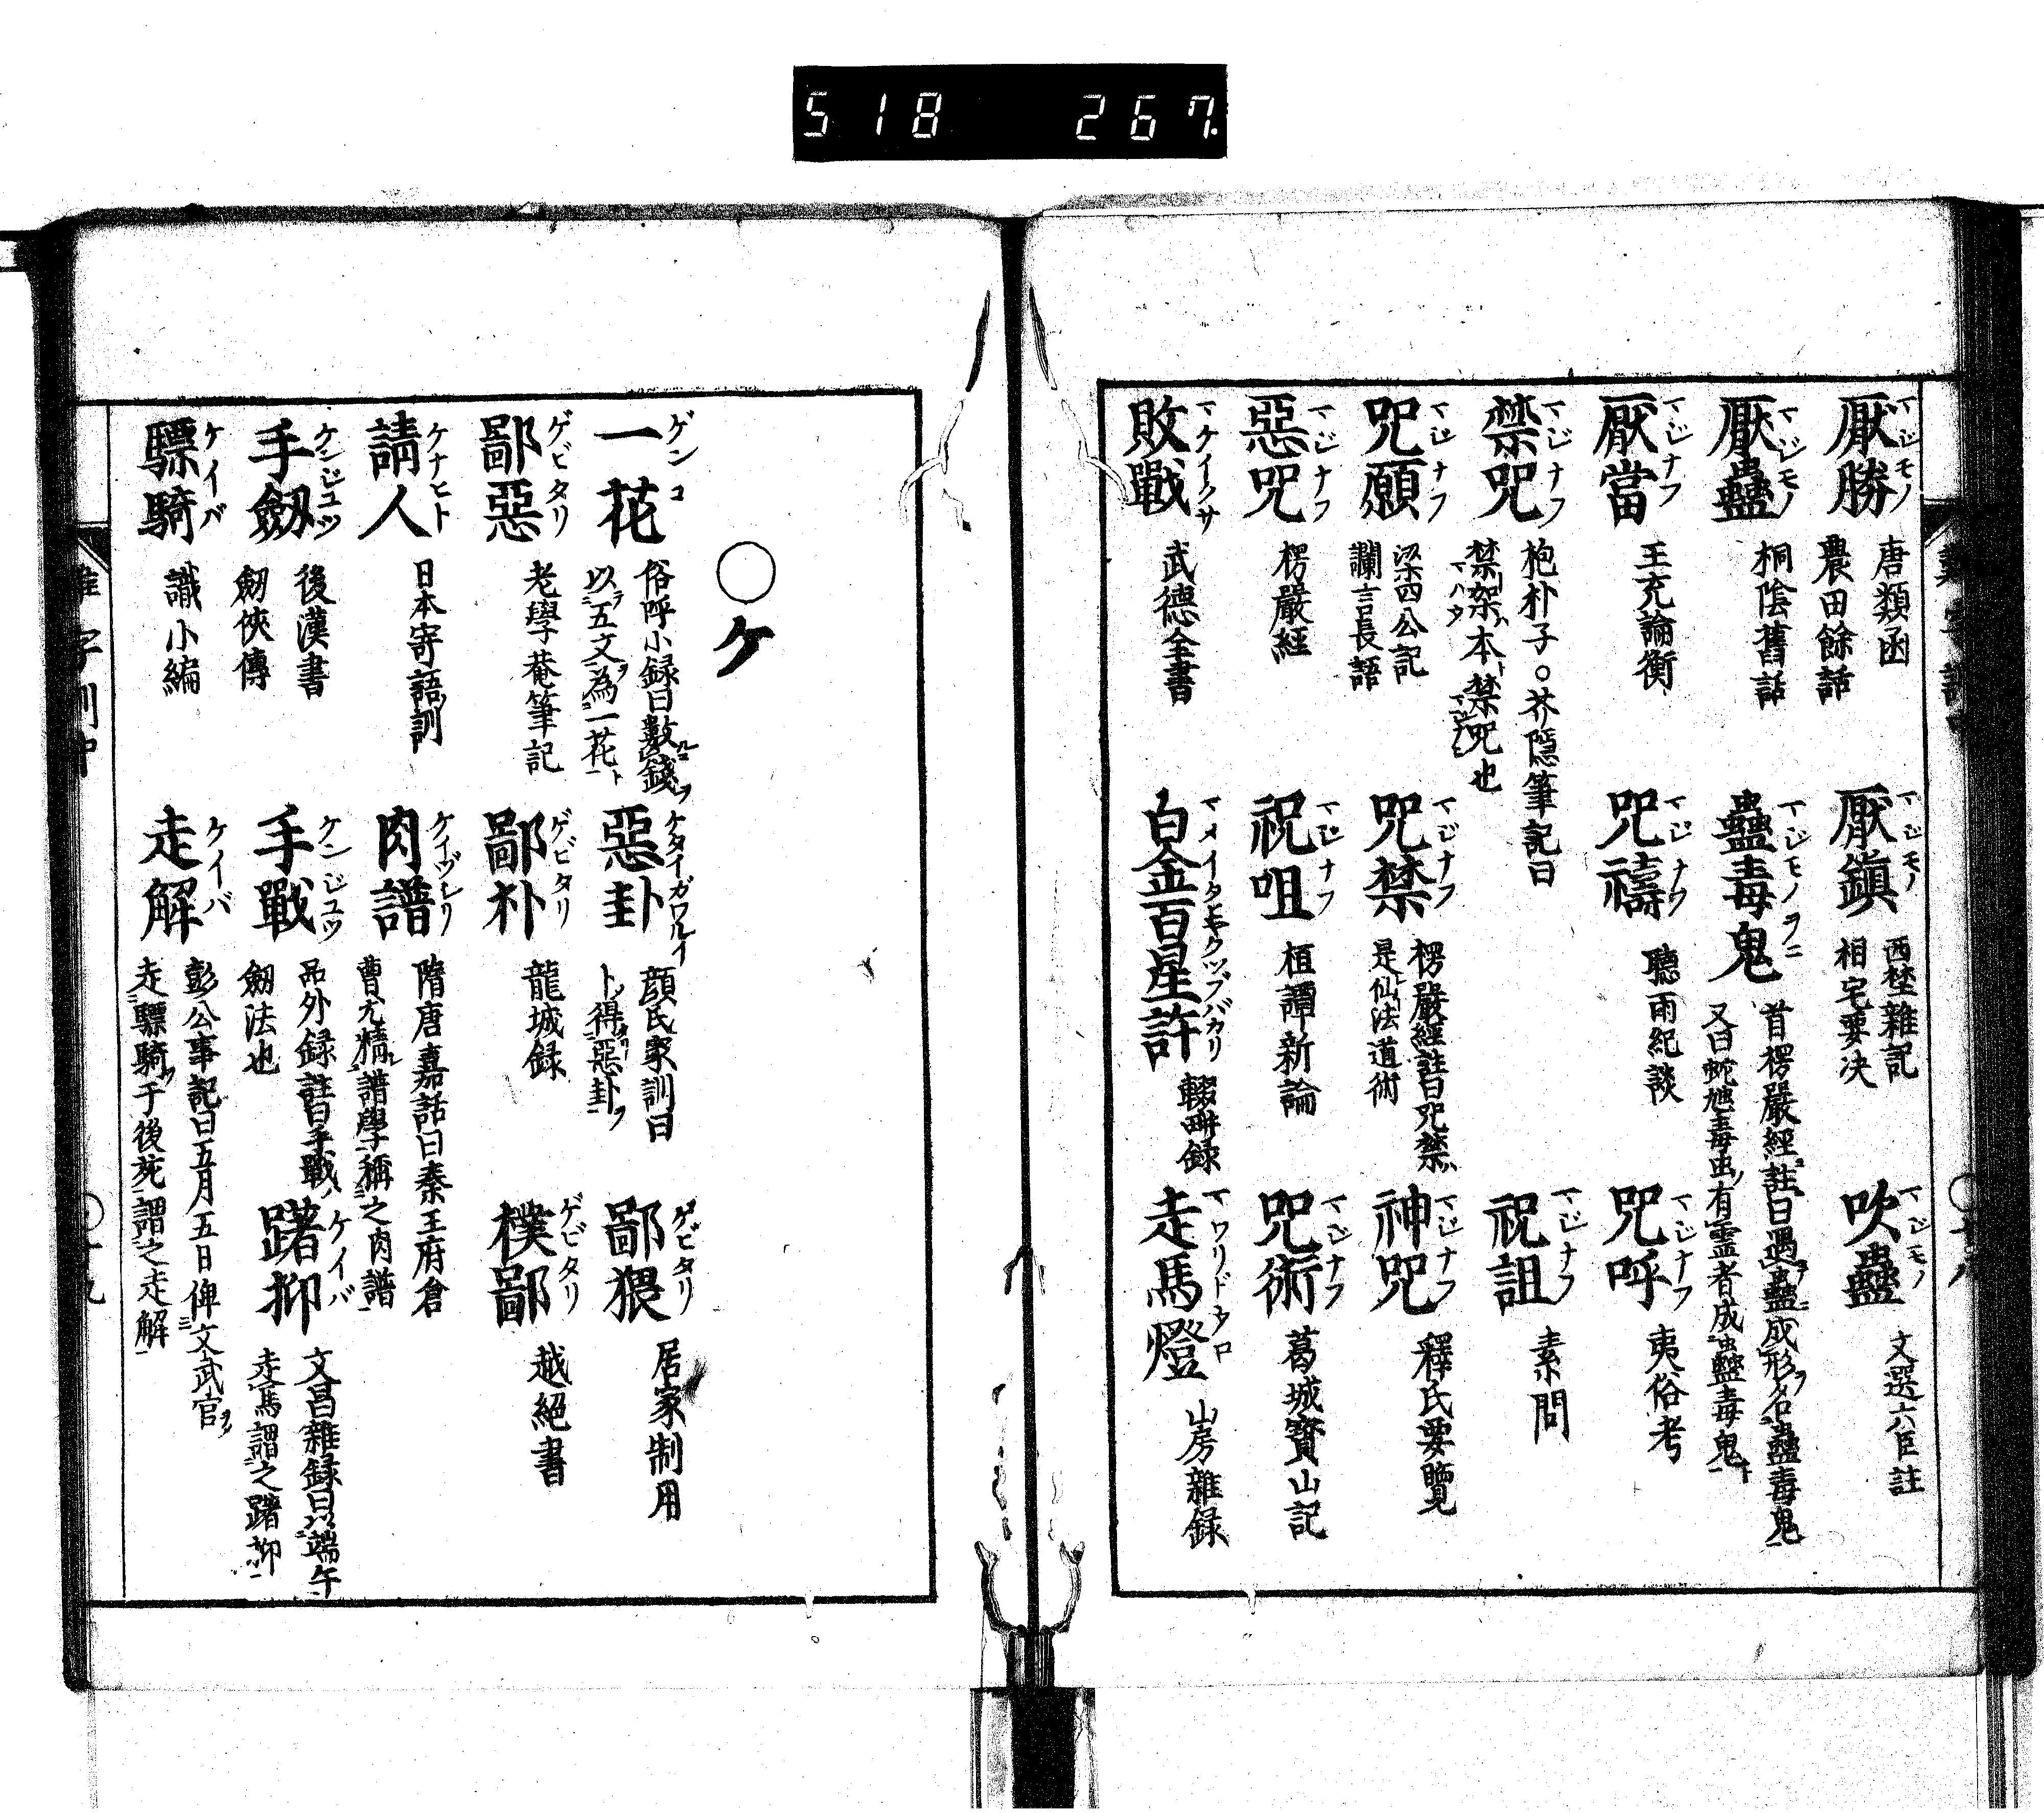 518 267
厭勝 マジモノ 唐類函 農田餘話
厭鎮 マジモノ 西墅雜記 相宅要决
吹蠱 マジモノ 文選六臣註
厭蠱 マジモノ 桐陰舊話
蠱毒鬼 マジモノヲニ 首楞嚴經註曰遇蠱成形名蠱毒鬼 又曰蛇虺毒虫有霊者成蠱毒鬼
厭當 マジナフ 王充論衡
咒禱 マジナフ 聽雨紀談
咒呼 マジナフ 夷俗考
禁咒 マジナフ 抱朴子。芥隠筆記曰 禁架本禁咒也
祝詛 マジナフ 素問
咒願 マジナフ 梁四公記 讕言長語
咒禁 マジナフ 楞嚴經註曰咒禁 是仙法道術
神咒 マジナフ 釋氏要覽
惡咒 マジナフ 楞嚴経
祝咀 マジナフ 桓譚新論
咒術 マジナフ 葛城寶山記
敗戰 マケイクサ 武德全書
白金百星許 マメイタヒヤクツブバカリ 輟畊録
走馬燈 マワリドウロ 山房雜録
○ケ
一花 ゲンコ 俗呼小録曰數錢 以五文為一花
惡卦 ケタイガワルイ 顔氏家訓曰 卜得惡卦
鄙猥 ゲビタリ 居家制用
鄙惡 ゲビタリ 老學菴筆記
鄙朴 ゲビタリ 龍城録
樸鄙 ゲビタリ 越絕書
請人 ケナヒト 日本寄語訓
肉譜 ケイヅシリ 隋唐嘉話曰秦王府倉 曹尤精譜學稱之肉譜
手劔 ケンジユツ 後漢書 劔俠傳
手戰 ケンジユツ 品外録註曰手戰 劔法也
躤柳 ケイバ 文昌雜録曰以端午 走馬謂之躤柳
驃騎 ケイバ 識小編
走解 ケイバ 彭公事記曰五月五日俾文武官 走驃騎于後苑謂之走解